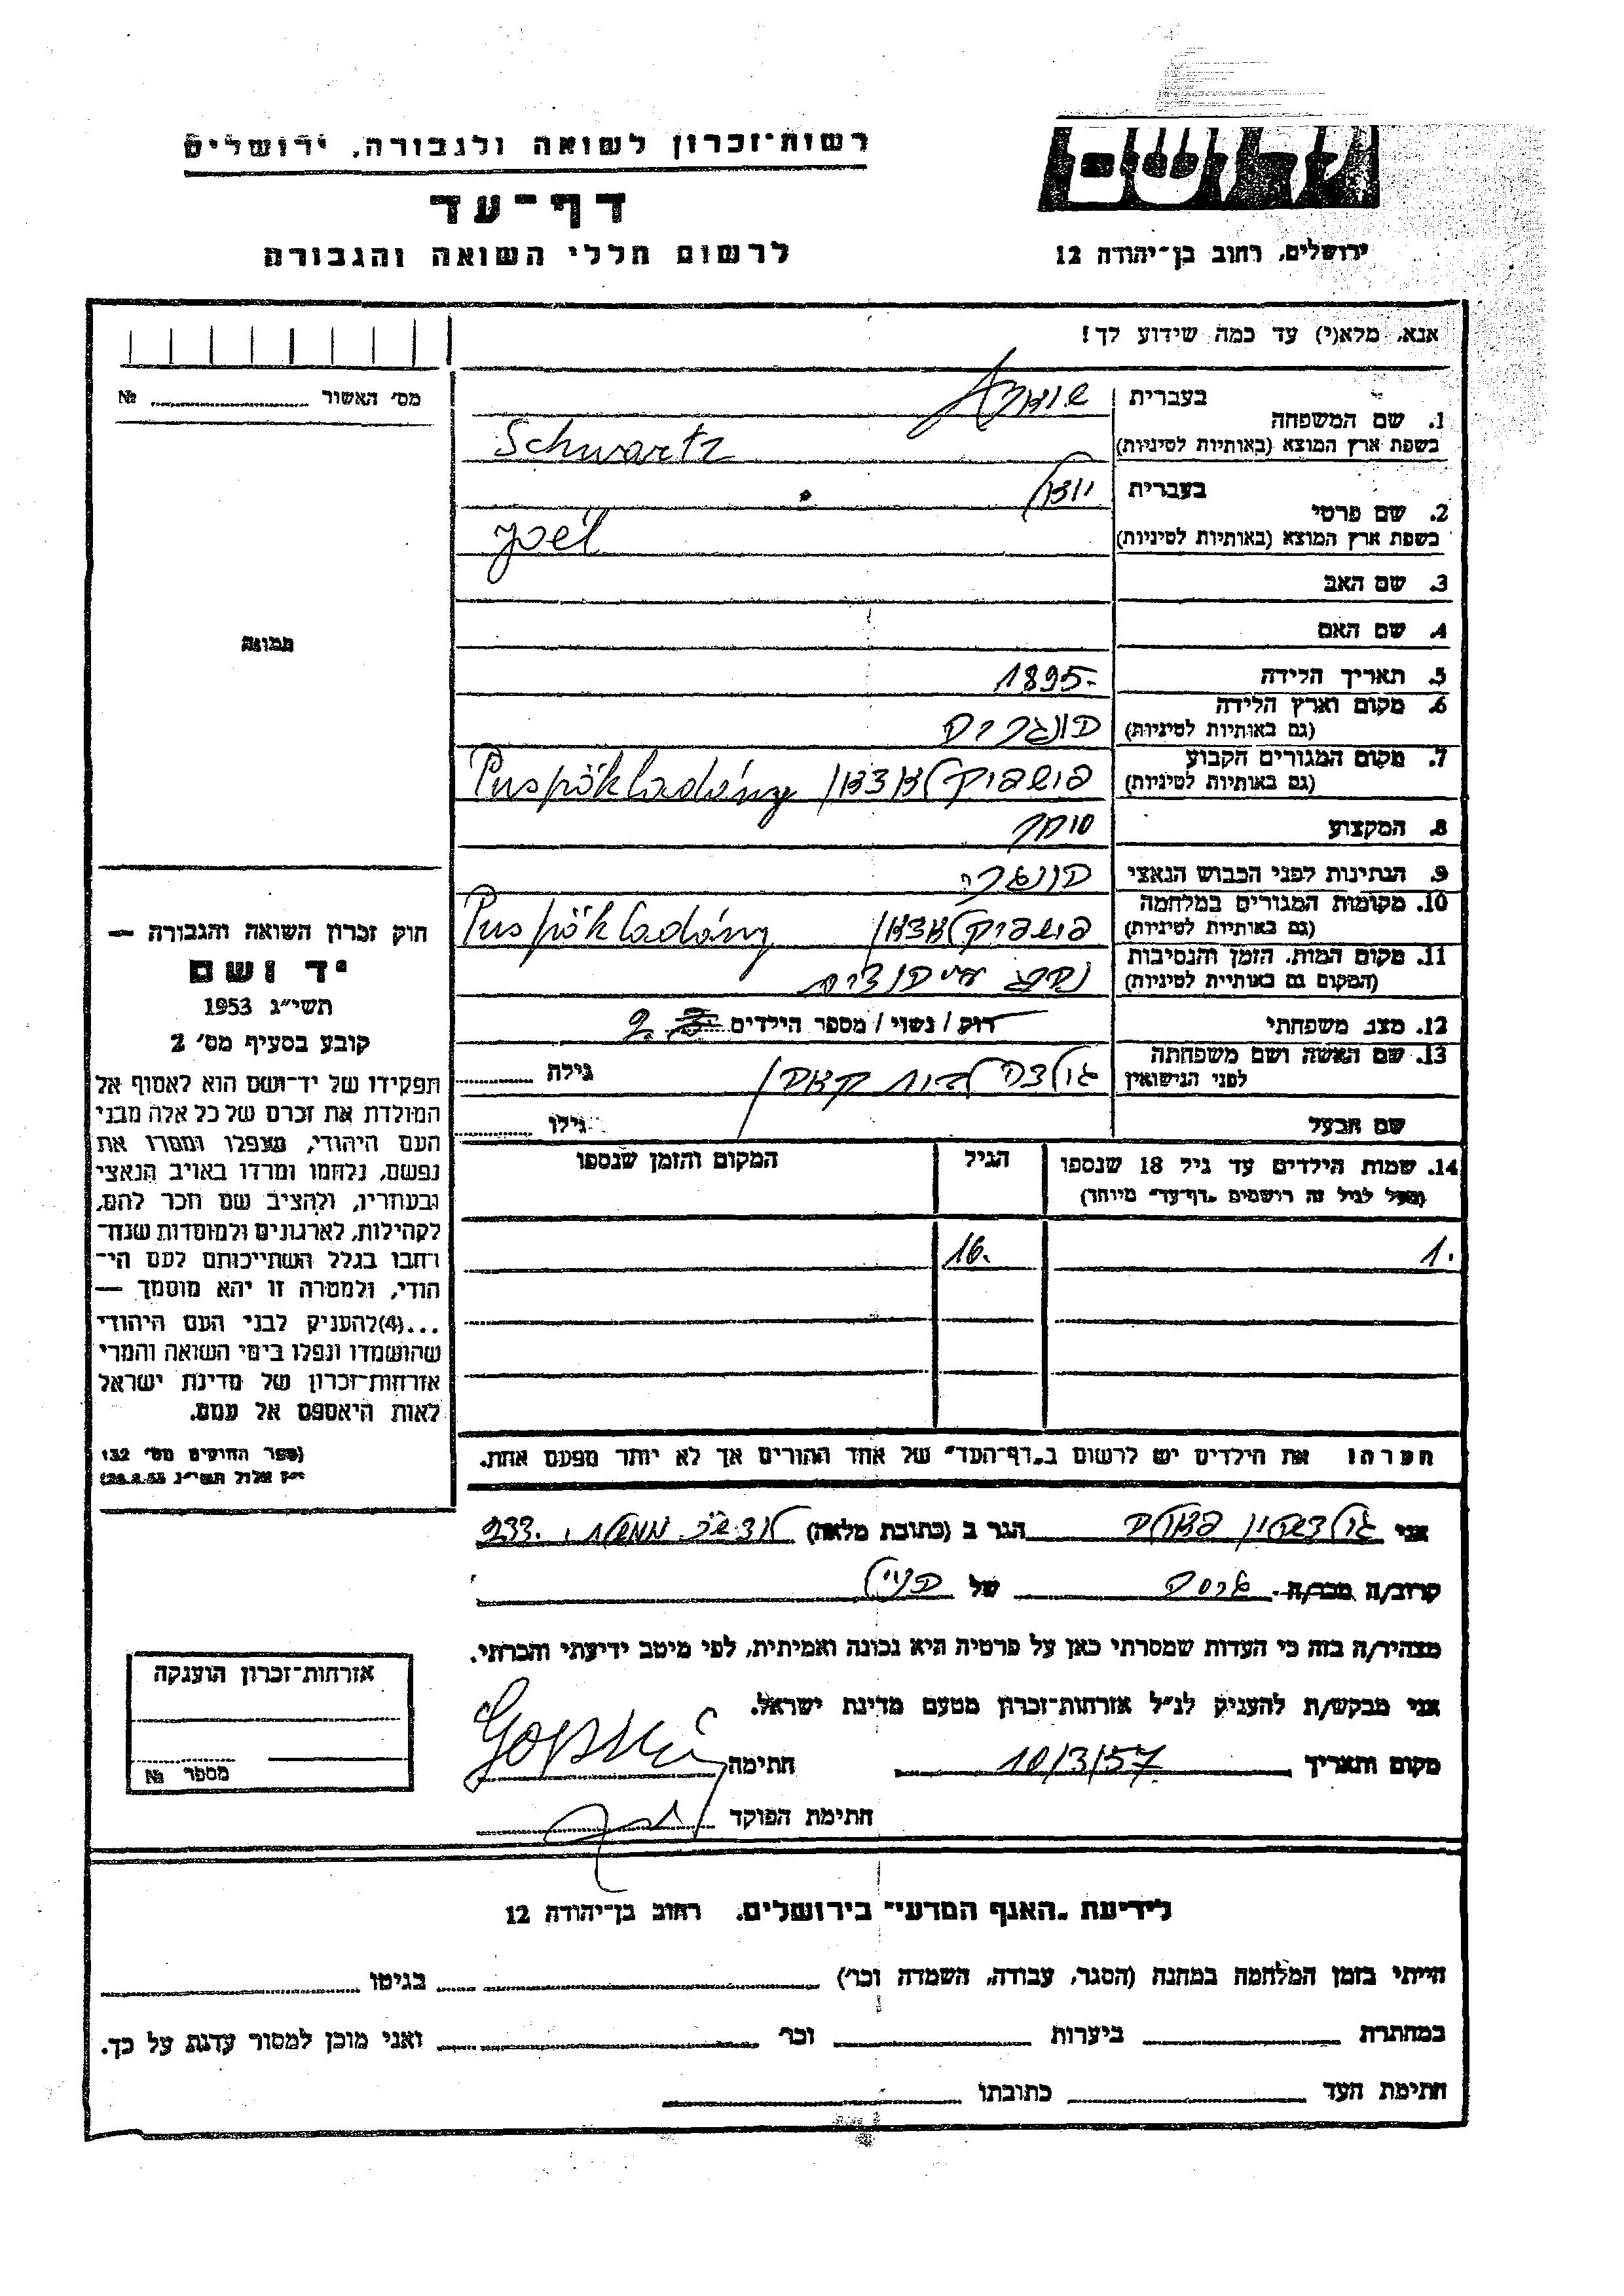 רשות־זכרון לשואה ולגבורה, ירושלים
דף־עד
לרשום חללי השואה והגבורה
ירושלים, רחוב בן־יהודה 12
אנא, מלא(י) עד כמה שידוע לך!
מס' האשור № 
תמונה
1. שם המשפחה
בעברית
בשפת ארץ המוצא (באותיות לטיניות) Schwartz
2. שם פרטי
בעברית
בשפת ארץ המוצא (באותיות לטיניות) Joél
3. שם האב
4. שם האם
5. תאריך הלידה 1895-
6. מקום וארץ הלידה
(גם באותיות לטיניות)
7. מקום המגורים הקבוע
(גם באותיות לטיניות) Puspökladány
8. המקצוע סוחר
9. הנתינות לפני הכבוש הנאצי הונגרי
10. מקומות המגורים במלחמה
(גם באותיות לטיניות) Puspökladány
11. מקום המות, הזמן והנסיבות
(המקום גם באותיות לטיניות)
12. מצב משפחתי רוק / נשוי / מספר הילדים 2
13. שם האשה ושם משפחתה
לפני הנישואין גילה
שם הבעל גילו
14. שמות הילדים עד גיל 18 שנספו הגיל המקום והזמן שנספו
(מעל לגיל זה רושמים "דף־עד" מיוחד)
1. 16.
הערה: את הילדים יש לרשום ב"דף־העד" של אחד ההורים אך לא יותר מפעם אחת.
חוק זכרון השואה והגבורה —
יד ושם
תשי"ג 1953
קובע בסעיף מס' 2
תפקידו של יד־ושם הוא לאסוף אל
המולדת את זכרם של כל אלה מבני
העם היהודי, שנפלו ומסרו את
נפשם, נלחמו ומרדו באויב הנאצי
ובעוזריו, ולהציב שם וזכר להם,
לקהילות, לארגונים ולמוסדות שנח־
רבו בגלל השתייכותם לעם הי־
הודי, ולמטרה זו יהא מוסמך —
...(4) להעניק לבני העם היהודי
שהושמדו ונפלו בימי השואה והמרי
אזרחות־זכרון של מדינת ישראל
לאות היאספם אל עמם.
(ספר החוקים מס' 132
י"ז אלול תשי"ג 28.8.53)
אני הגר ב (כתובת מלאה) 233.
קרוב/ה מכר/ה של
מצהיר/ה בזה כי העדות שמסרתי כאן על פרטיה היא נכונה ואמיתית, לפי מיטב ידיעתי והכרתי.
אני מבקש/ת להעניק לנ"ל אזרחות־זכרון מטעם מדינת ישראל.
מקום ותאריך 10/3/57 חתימה
חתימת הפוקד
אזרחות־זכרון הוענקה
מספר №
לידיעת "האגף המדעי" בירושלים, רחוב בן־יהודה 12
הייתי בזמן המלחמה במחנה (הסגר, עבודה, השמדה וכו') בגיטו
במחתרת ביערות וכו' ואני מוכן למסור עדות על כך.
חתימת העד כתובתו